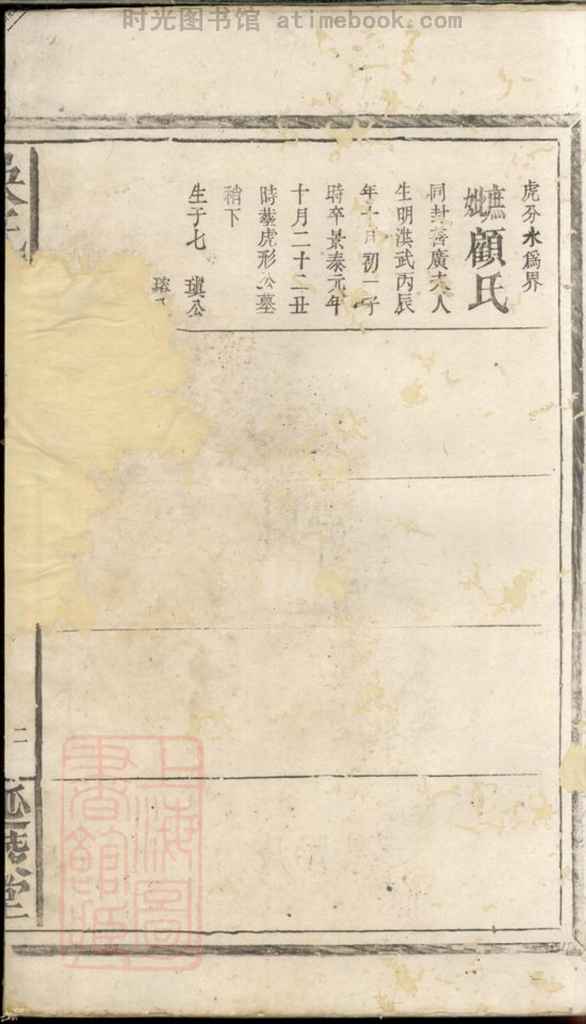 时光图书馆 atimebook.com
虎爲水爲界
庶妣顧氏
同封善廣夫人
生明洪武丙辰
年十月初一子
時卒景泰元年
十月二十二丑
時葬虎形公墓
稍下
生子七 璵公
二
上海圖書館藏